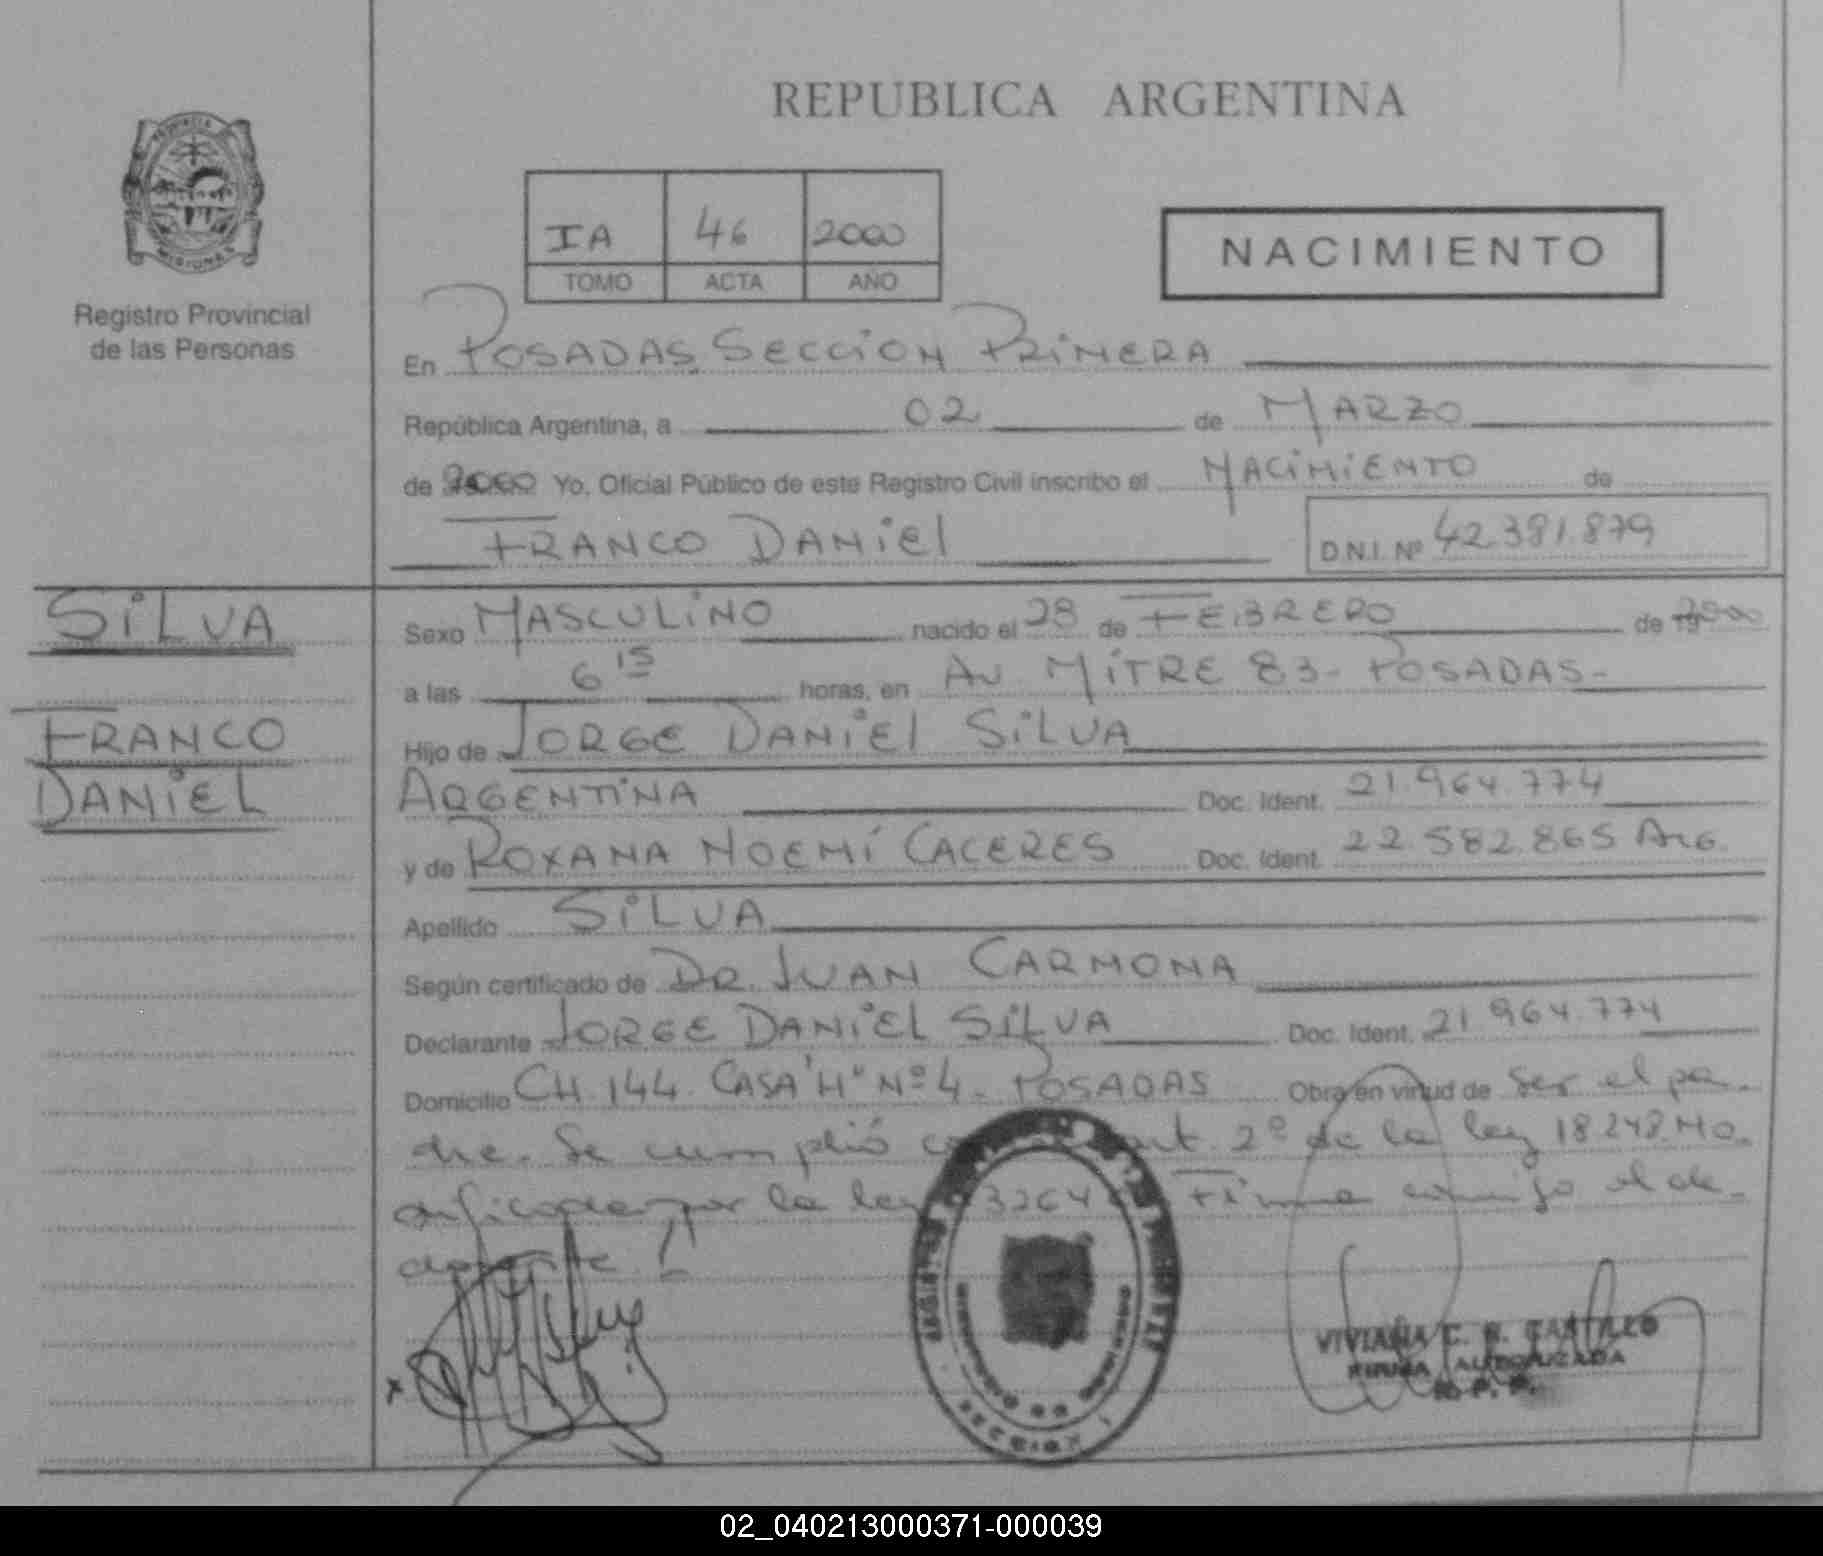 REPUBLICA ARGENTINA
PROVINCIA DE
MISIONES
Registro Provincial
de las Personas
IA 46 2000
TOMO ACTA AÑO
NACIMIENTO
En POSADAS SECCION PRIMERA
República Argentina, a 02 de MARZO
de 2000 Yo, Oficial Público de este Registro Civil inscribo el NACIMIENTO de
FRANCO DANIEL
D.N.I. Nº 42.381.879
SILVA
FRANCO
DANIEL
Sexo MASCULINO nacido el 28 de FEBRERO de 2000
a las 6 15 horas, en AV MITRE 83- POSADAS-
Hijo de JORGE DANIEL SILVA
ARGENTINA Doc. Ident. 21.964.774
y de ROXANA NOEMÍ CACERES Doc. Ident. 22.582.865 ARG.
Apellido SILVA
Según certificado de DR. JUAN CARMONA
Declarante JORGE DANIEL SILVA Doc. Ident. 21 964.774
Domicilio CH. 144. CASA "H" Nº 4. POSADAS Obra en virtud de ser el pa-
dre. Se cumplió art. 2º de la ley 18248. Mo-
dificada por la ley 3264 Firma conmigo el de-
VIVIANA C. R. CASTILLO
FIRMA AUTORIZADA
R. P. P.
02_040213000371-000039